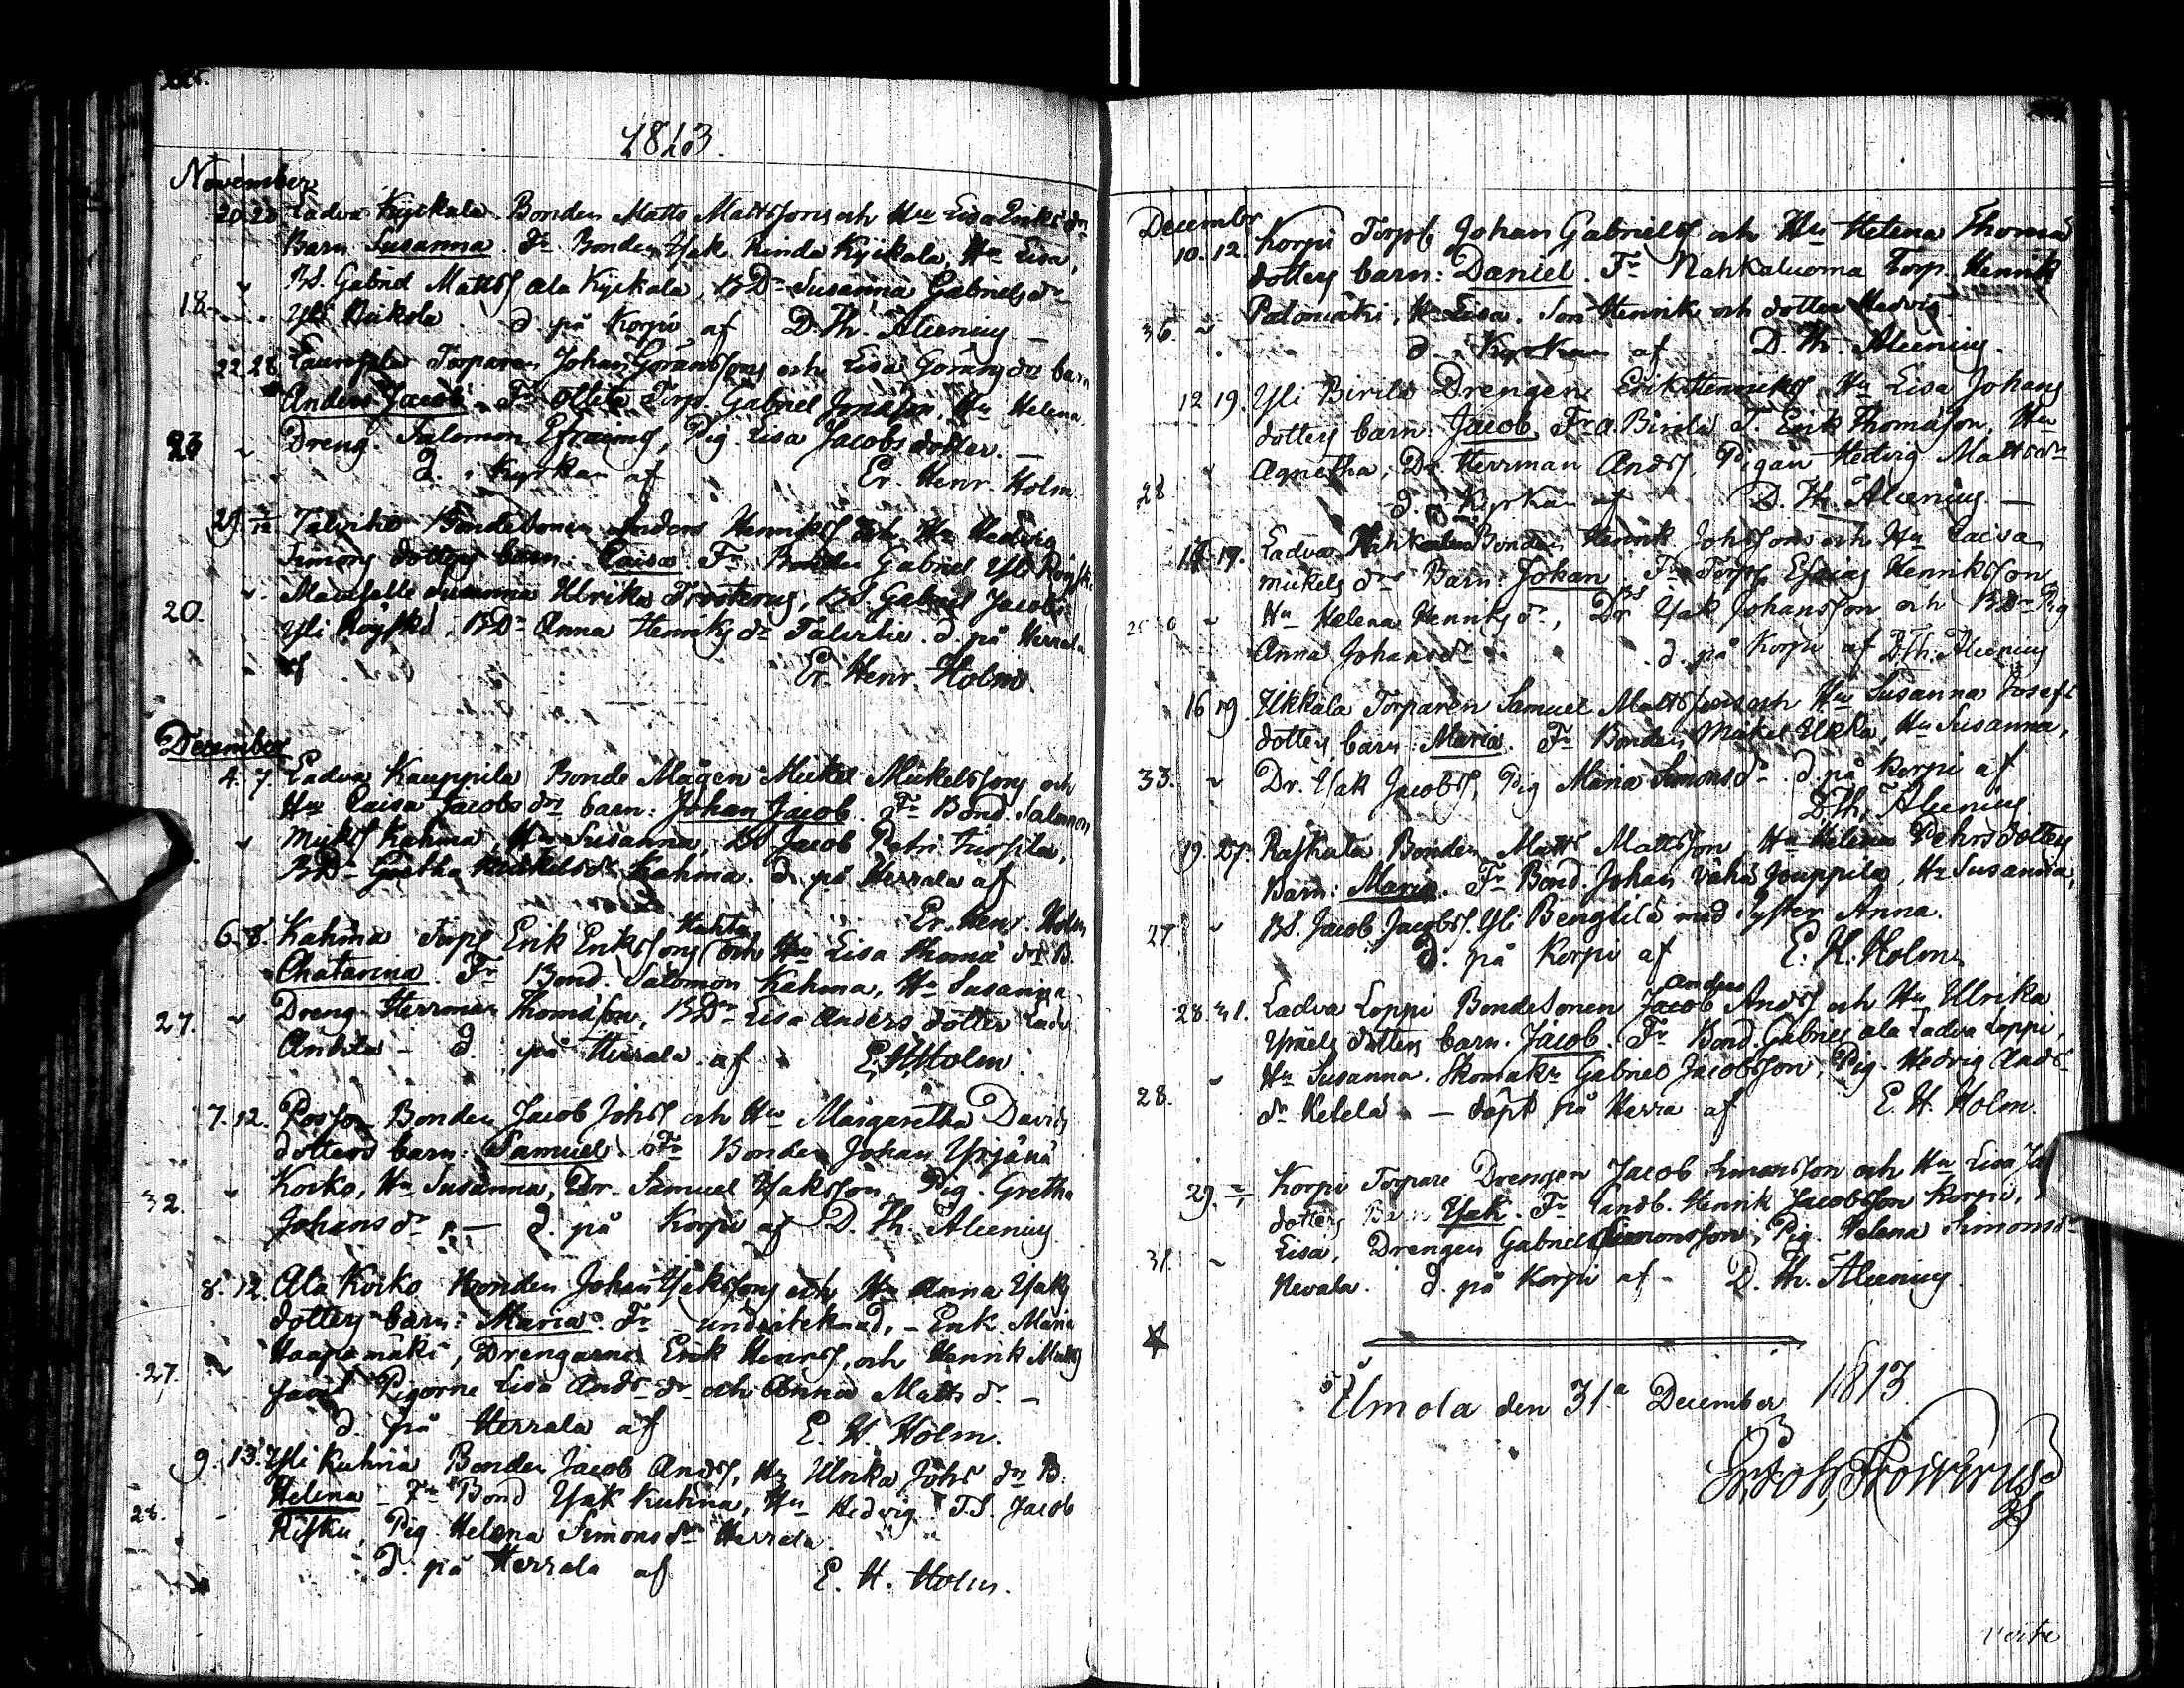 1813.
November
20. 23. Ladva Kyikala Bonden Matts Mattssons och Hu Lisa Eriks dr
Barn Susanna. Fr Bonden Isak Rinda Kyikala, Hu Lisa,
BS. Gabriel Mattss Ala Kyikala, BDr Susanna Gabriels dr
18. Yli d. på Korpi af D. Th. Alcenius
22. 28. Torparen Johan Göranssons och Lisa Görans dr barn
Anders Jacob. Fr Ollila Torp. Gabriel Jonasson, Hu Helena
23 Dreng. Salomon Efraims, Pig. Lisa Jacobs dotter.
d. i Kyrkan af Er. Henr. Holm
29. Talvitie Bondesonen Anders Henrikss och Hu Hedvig
Simons dotters barn: Caisa. Fr Bonden Gabriel Yli Röyskö
Mamselle Susanna Ulrika Frosterus, BS. Gabriel Jacobs
20. Yli Röyskö, BDr Anna Henriks dr Talvitie. d. på Herrala
af Er. Henr. Holm
December
4. 7. Ladva Kauppila Bonde Mågen Mickel Mickelssons och
Hu Caisa Jacobs drs barn: Johan Jacob. Fr Bond. Salomon
Mickls Kahma, Hu Susanna, BS Jacob Petri
BDr Gretha Mickels dr Kahma. d. på Herrala af
Er. Henr. Holm
6. 8. Kahma Torp Erik Erikssons Huhta och Hu Lisa Thomæ drs B.
Chatarina. Fr Bond. Salomon Kahma, Hu Susanna
27. Dreng Herrman Thomasson, BDr Lisa Anders dotter Ladv.
Anttila - d. på Herrala af E. H. Holm
7. 12. Bonden Jacob Johss och Hu Margaretha Davids
dotters barn: Samuel. Fr Bonden Johan Yrjänä
32. Koiko, Hu Susanna, Dr. Samuel Isaksson, Pig. Gretha
Johans dr — d. på Korpi af D. Th. Alcenius
8. 12. Ala Koiko Bonden Johan Isakssons och Hu Anna Isaks
dotters barn: Maria. Fr undertecknad, - Enk. Maria
Haapamäki, Drengarne Erik Henrss, och Henrik Matts
27. samt Pigorne Lisa Ands dr och Anna Matts dr. -
d. på Herrala af E. H. Holm.
9. 13. Yli Kuhna Bonden Jacob Andss, Hu Ulrika Johs drs B.
Helena - Fr Bond Isak Kuhna, Hu Hedvig. T.S. Jacob
28. Risku, Pig Helena Simons dr Herrala.
d. på Herrala af E. H. Holm.
December
10. 12. Korpi Torp. Johan Gabrielss och Hu Helena Thomæ
dotters barn: Daniel. Fr Nahkaluoma Torp. Henrik
36. Palomäki, Hu Lisa. Son Henrik och dotter Hedvig.
d. i Kyrkan af D. Th. Alcenius.
12 19. Yli Birila Drengen Erik Henrickss, Hu Lisa Johans
dotters barn: Jacob, Fr A. Birila T. Erik Thomasson, Hu
Agnetha; Dr. Herrman Andss, Pigan Hedvig Matts dr
28 d. i Kyrkan af D. Th. Alcenius —
17 19. Ladva Bonden Henrik Johssons och Hu Caisa
Mickels drs Barn: Johan, Fr Torp. Esaias Henriksson,
Hu Helena Henriks dr, Dr Isak Johansson och BDr Pig
Anna Johans dr d. på Korpi af D. Th. Alcenius
16 19. Ukkala Torparen Samuel Mattssons och Hu Susanna Josefs
dotters barn: Maria. Fr Bonden Mickel Ukka, Hu Susanna,
33. Dr. Isak Jacobss, Pig Maria Simons dr. d. på Korpi af
D. Th. Alcenius
19. 27. Bonden Matts Mattsson Hu Helena Pehrs dotters
Barn: Maria. Fr Bond. Johan Vähä Jouppila, Hu Susanna,
27 BS. Jacob Jacobss. Yli Bengtilä med Syster Anna.
d. på Korpi af E. H. Holm.
28. 31. Ladva Loppi Bondesonen Jacob Anders Andss och Hu Ulrika
dotters barn. Jacob. Fr Bond. Gabriel ala Ladva Loppi,
Hu Susanna. Skomakr Gabriel Jacobsson, Pig. Hedvig Ands
28. dr — döpt på Herra af E. H. Holm.
29. Korpi Torpare Drengen Jacob Simonsson och Hu Lisa
dotters Barn Isak. Fr Landb. Henrik Jacobsson Korpi,
Lisa, Drengen Gabriel Simonsson, Pig. Helena Simons dr
31. Nevala. d. på Korpi af - D. Th. Alcenius.
Ilmola den 31a December 1813